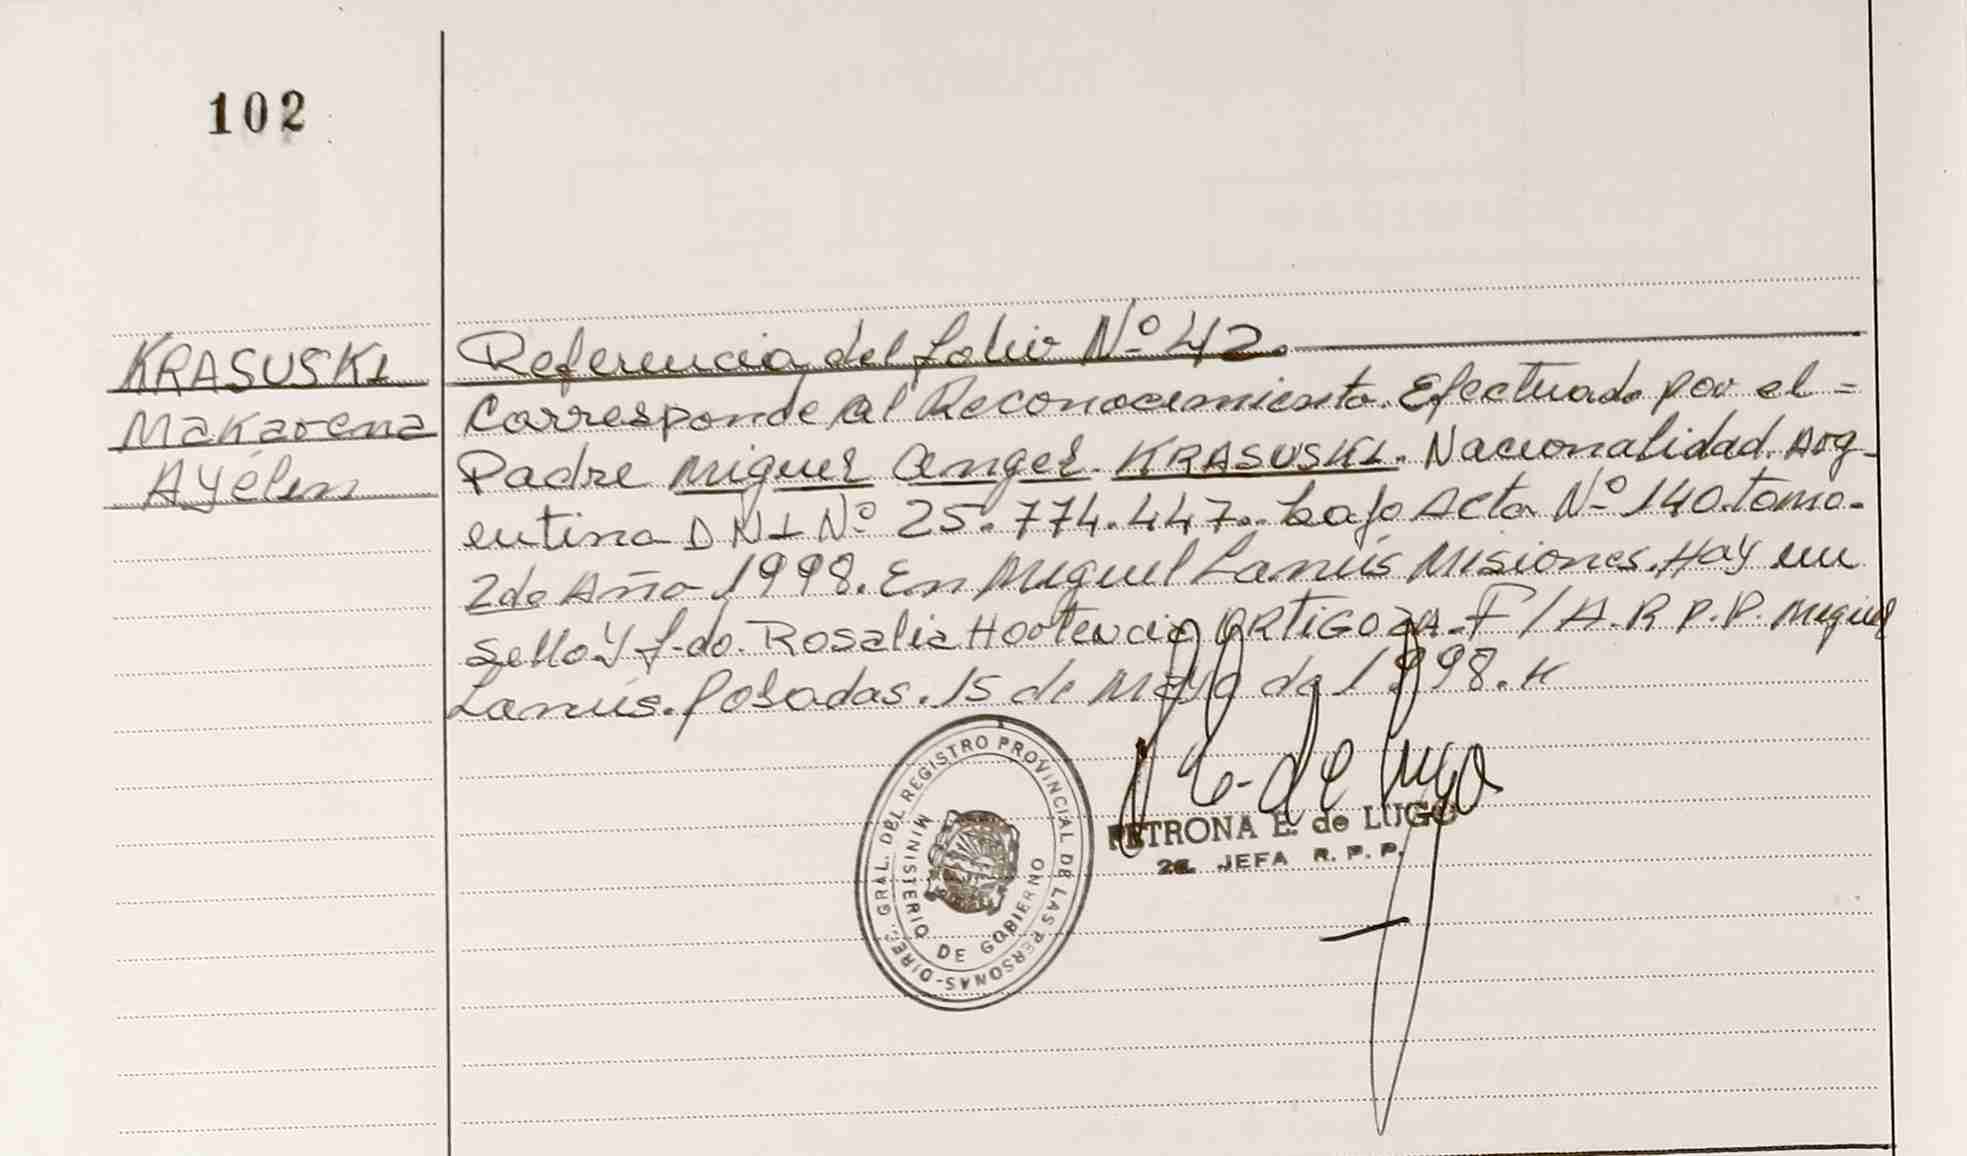 102
KRASUSKI
Makarena
Ayélen
Referencia del folio Nº 42.
Corresponde al Reconocimiento. Efectuado por el =
Padre Miguel Angel. KRASUSKI. Nacionalidad. Arg-
entina DNI Nº 25.774.447. bajo Acta Nº 140. tomo.
2do Año 1998. En Miguel Lanús Misiones. Hay un
sello y f-do. Rosalia Hortencia ORTIGOZA. F/A. R P.P. Miguel
Lanús. Posadas. 15 de Mayo de 1998. K
DIREC. GRAL. DEL REGISTRO PROVINCIAL DE LAS PERSONAS-
MINISTERIO DE GOBIERNO
de Lugo
PETRONA E. de LUGO
2a. JEFA R. P. P.